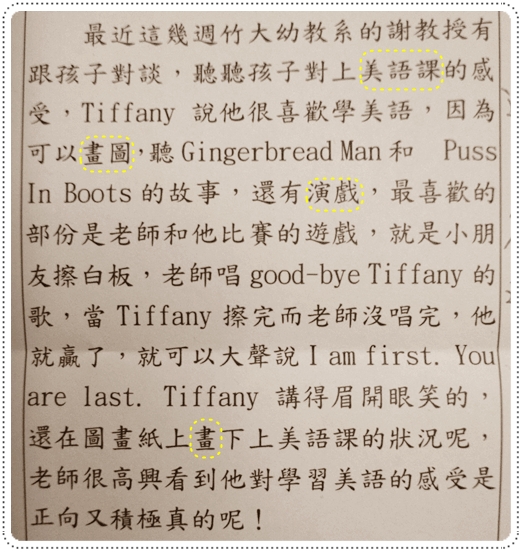 最近這幾週竹大幼教系的謝教授有
跟孩子對談，聽聽孩子對上美語課的感
受，Tiffany 說他很喜歡學美語，因為
可以畫圖，聽 Gingerbread Man 和 Puss
In Boots 的故事，還有演戲，最喜歡的
部份是老師和他比賽的遊戲，就是小朋
友擦白板，老師唱 good-bye Tiffany 的
歌，當 Tiffany 擦完而老師沒唱完，他
就贏了，就可以大聲說 I am first. You
are last. Tiffany 講得眉開眼笑的，
還在圖畫紙上畫下上美語課的狀況呢，
老師很高興看到他對學習美語的感受是
正向又積極真的呢！